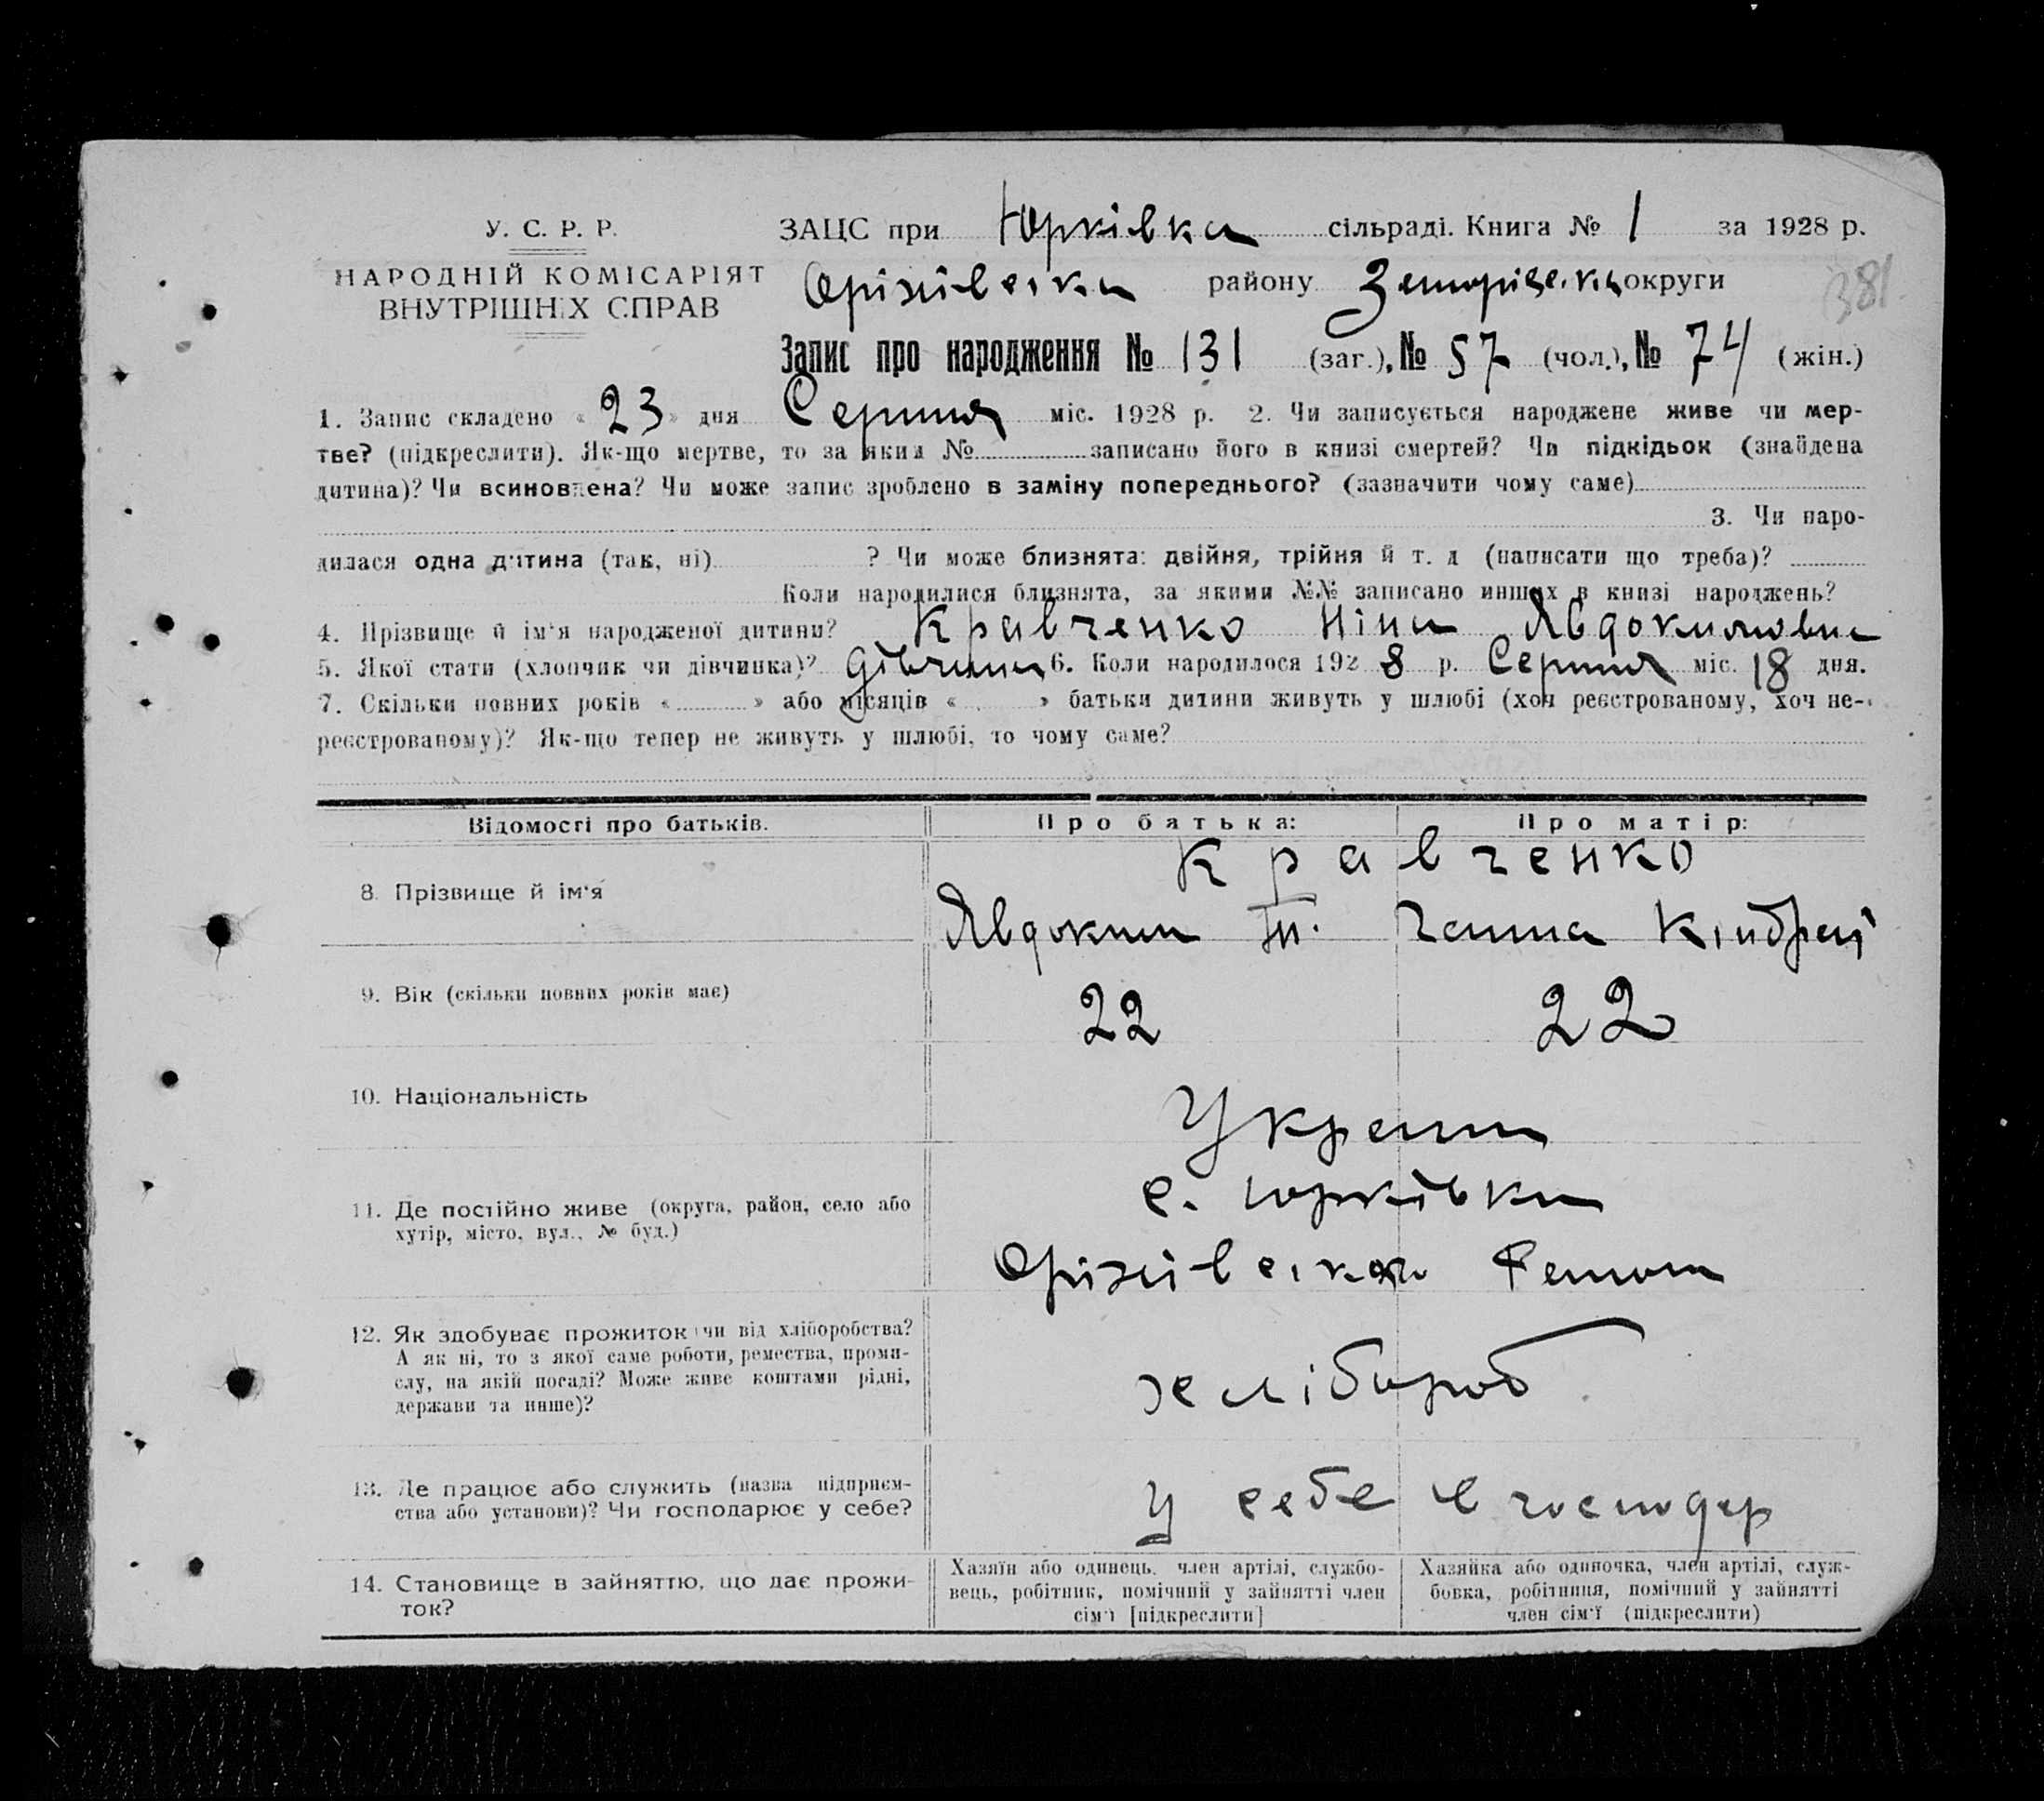 У. С. Р. Р.
НАРОДНІЙ КОМІСАРІЯТ
ВНУТРІШНІХ СПРАВ
ЗАЦС при Юрківка сільраді. Книга № 1 за 1928 р.
Оріхівська району Запорізька округи
381
Запис про народження № 131 (заг.), № 57 (чол.), № 74 (жін.)
1. Запис складено « 23 » дня Серпня міс. 1928 р. 2. Чи записується народжене живе чи мер-
тве? (підкреслити). Як-що мертве, то за яким № записано його в книзі смертей? Чи підкідьок (знайдена
дитина)? Чи всиновлена? Чи може запис зроблено в заміну попереднього? (зазначити чому саме)
3. Чи наро-
дилася одна дитина (так, ні) ? Чи може близнята: двійня, трійня й т. д (написати що треба)?
Коли народилися близнята, за якими №№ записано инших в книзі народжень?
4. Прізвище й ім'я народженої дитини? Кравченко Ніна Явдокимовна
5. Якої стати (хлопчик чи дівчинка)? дівчина 6. Коли народилося 192 8 р. Серпня міс. 18 дня.
7. Скільки повних років « » або місяців « » батьки дитини живуть у шлюбі (хоч реєстрованому, хоч не-
реєстрованому)? Як-що тепер не живуть у шлюбі, то чому саме?
Відомості про батьків. Про батька: Про матір:
Кравченко
8. Прізвище й ім'я
Явдоким Ганна Кіндрат
9. Вік (скільки повних років має) 22 22
10. Національність
Україн
11. Де постійно живе (округа, район, село або
хутір, місто, вул., № буд.)
с. Юрківка
Оріхівська
12. Як здобуває прожиток чи від хліборобства?
А як ні, то з якої саме роботи, ремества, проми-
слу, на якій посаді? Може живе коштами рідні,
держави та инше)?
хлібороб
13. Де працює або служить (назва підприєм-
ства або установи)? Чи господарює у себе?
у себе в господар
14. Становище в зайняттю, що дає прожи-
ток?
Хазяїн або одинець, член артілі, службо-
вець, робітник, помічний у зайнятті член
сім'ї [підкреслити]
Хазяйка або одиночка, член артілі, служ-
бовка, робітниця, помічний у зайнятті
член сім'ї (підкреслити)